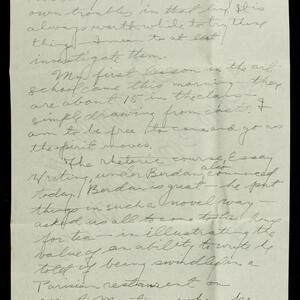 own troubles in that line. It is
always worth while to try these
things — I mean to at least
investigate them.
My first lesson in the art
school came this morning — they
are about 15 in the class —
simple drawing from cast. I
am to be free to come and go as
the spirit moves.
The rhetoric course, Essay
Writing, under Berdan, also commenced
today. Berdan is great — he put
things in such a novel way —
asked us all to come to his house
for tea — in illustrating the
value of an ability to write he
told of being swindled in a
Parisian restaurant on